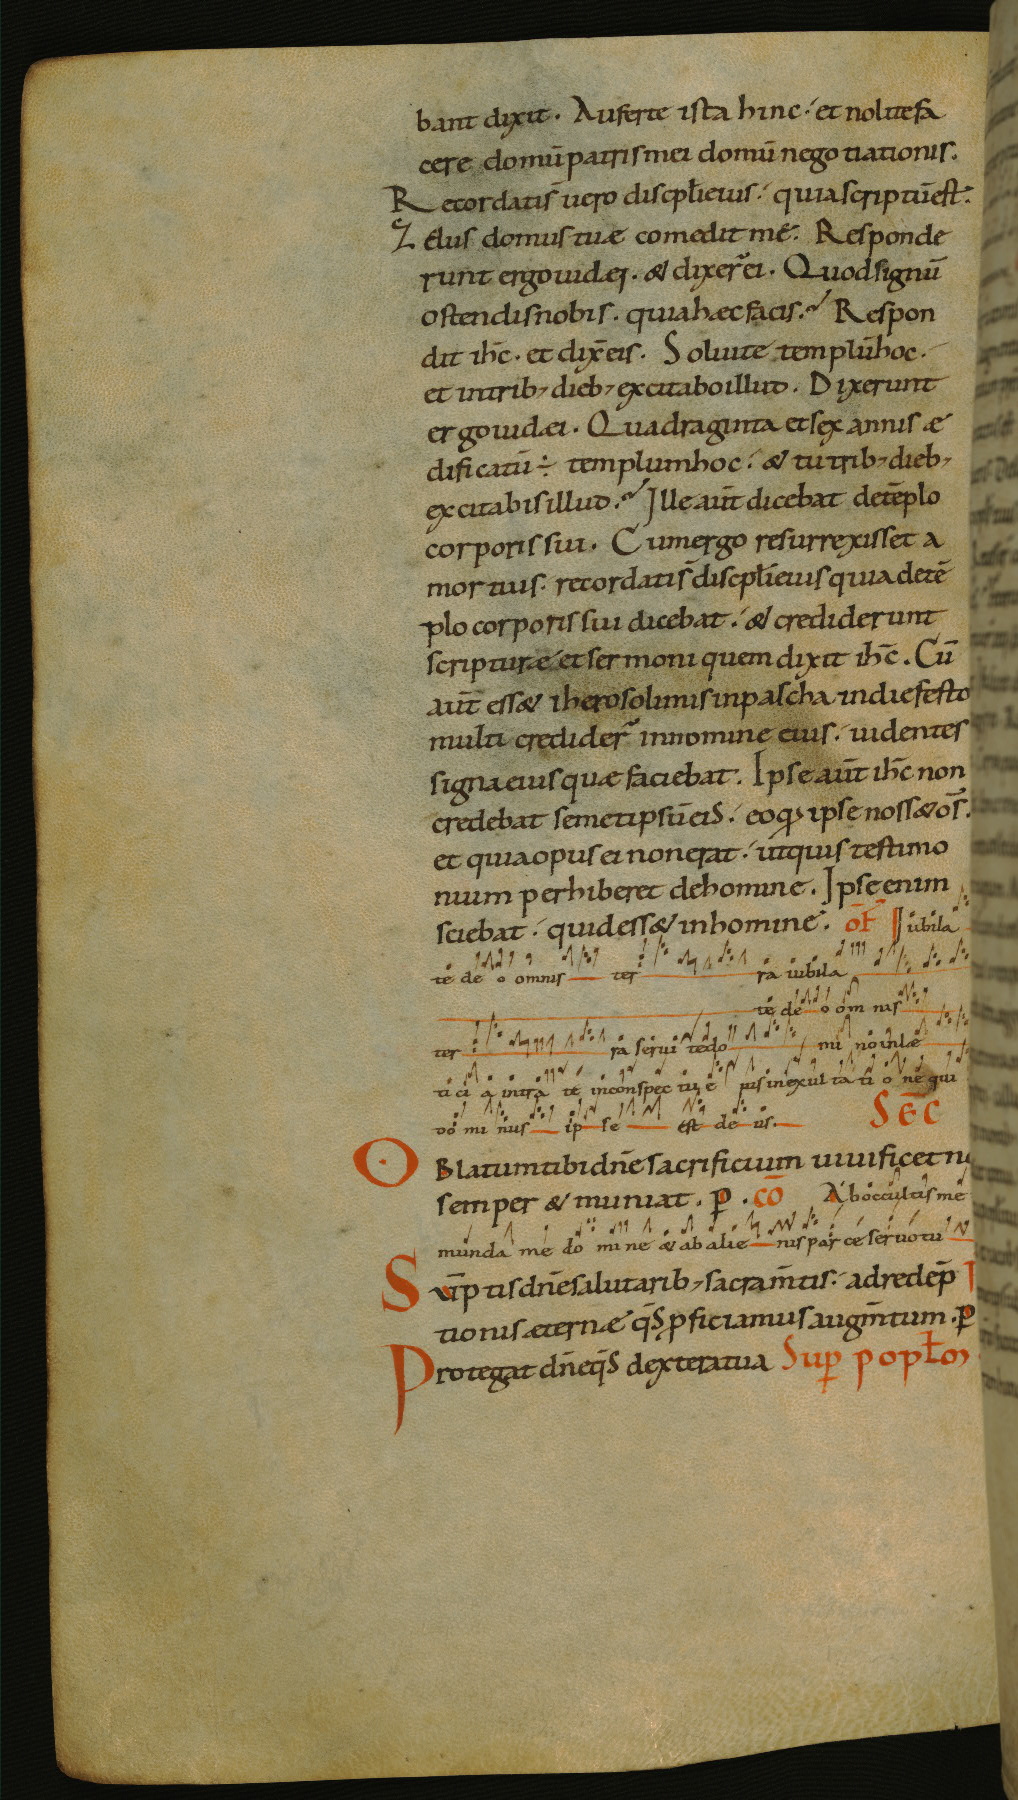 bant dixit. Auferte ista hinc. et nolite fa
cere domū patris mei domū negotiationis.
Recordatis̄ uero discipl̄i eius. quia scriptū est.
Zelus domus tuæ comedit me. Responde
runt ergo iudæi. & dixer̄ ei. Quod signū
ostendis nobis. quia hæc facis. Respon
dit ih̄c. et dix̄ eis. Soluite templū hoc.
et in trib; dieb; excitabo illud. Dixerunt
ergo iudæi. Quadraginta et sex annis æ
dificatū ÷ templum hoc. & tu trib; dieb;
excitabis illud. Ille aūt dicebat de tēplo
corporis sui. Cum ergo resurrexisset a
mortuis. recordatis̄ discipl̄i eius quia de tē
plo corporis sui dicebat. & crediderunt
scripturæ et sermoni quem dixit ih̄c. Cū
aūt ess& iherosolimis in pascha in die festo
multi creDider̄ in nomine eius. uidentes
signa eius quæ faciebat. Ipse aūt ih̄c non
credebat semetipsū eis. eo qđ ipse noss& om̄s.
et quia opus ei non erat. ut quis testimo
nium perhiberet de homine. Ipse enim
sciebat. quid ess& in homine. OF̄ Iubila
te deo omnis terra iubila
te deo omnis
terra seruite domino in læ
ticia intrate in conspectu e ius in exultatione qui
dominus ipse est deus. SEC̄
Oblatum tibi dn̄e sacrificium uiuificet n
semper & muniat. p̄. CŌ Ab occultis me
munda me domine & ab alienis parce seruo tu
Sūptis dn̄e salutarib; sacram̄tis. ad redēp
tionis æternæ qs̄ pficiamus augm̄tum. p̄
Protegat dn̄e qs̄ dextera tua Sup popl̄o